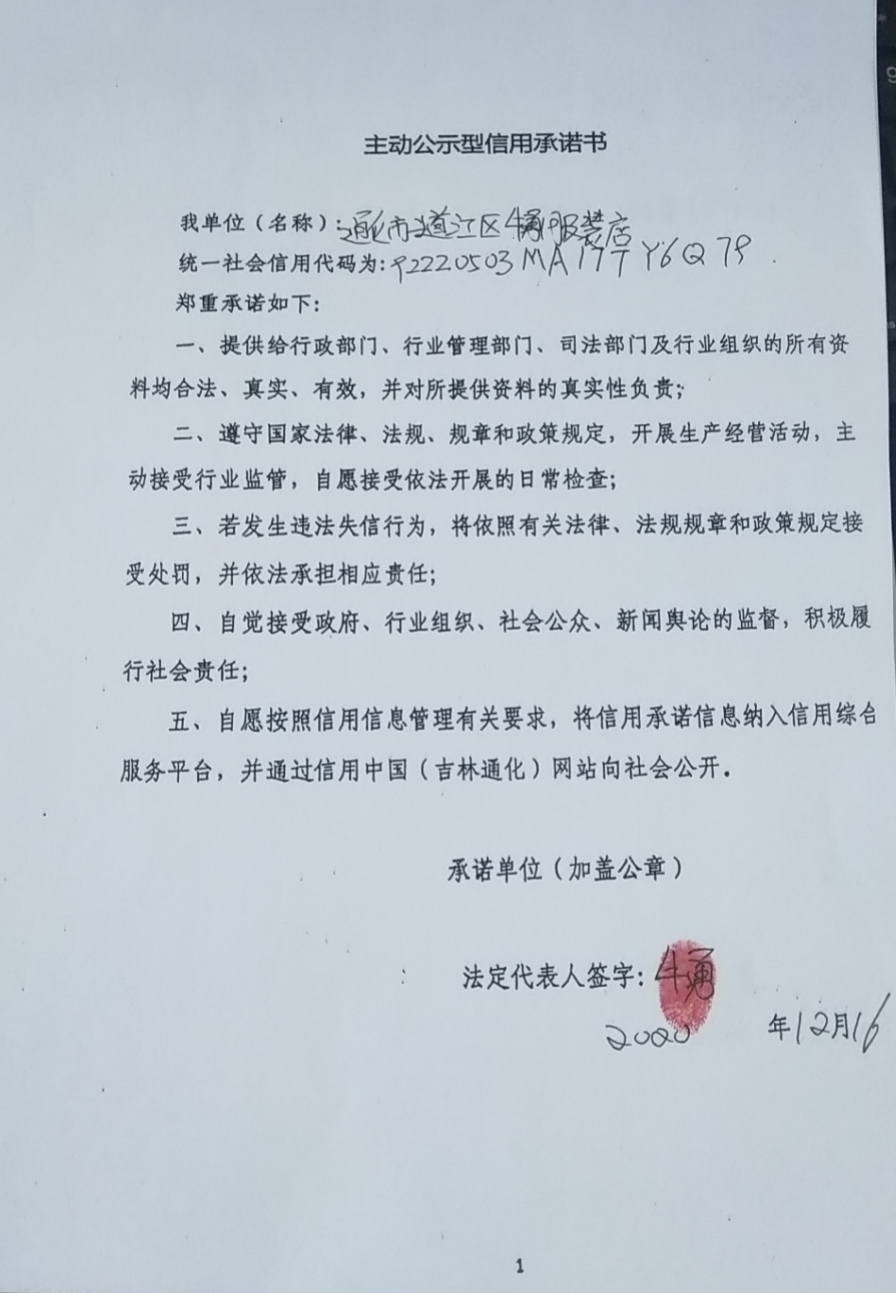 主动公示型信用承诺书
我单位（名称）：通化市二道江区牛勇服装店
统一社会信用代码为：92220503MA17TY6Q79
郑重承诺如下：
一、提供给行政部门、行业管理部门、司法部门及行业组织的所有资
料均合法、真实、有效，并对所提供资料的真实性负责；
二、遵守国家法律、法规、规章和政策规定，开展生产经营活动，主
动接受行业监管，自愿接受依法开展的日常检查；
三、若发生违法失信行为，将依照有关法律、法规规章和政策规定接
受处罚，并依法承担相应责任；
四、自觉接受政府、行业组织、社会公众、新闻舆论的监督，积极履
行社会责任；
五、自愿按照信用信息管理有关要求，将信用承诺信息纳入信用综合
服务平台，并通过信用中国（吉林通化）网站向社会公开。
承诺单位（加盖公章）
法定代表人签字：牛勇
2020 年12月16
1